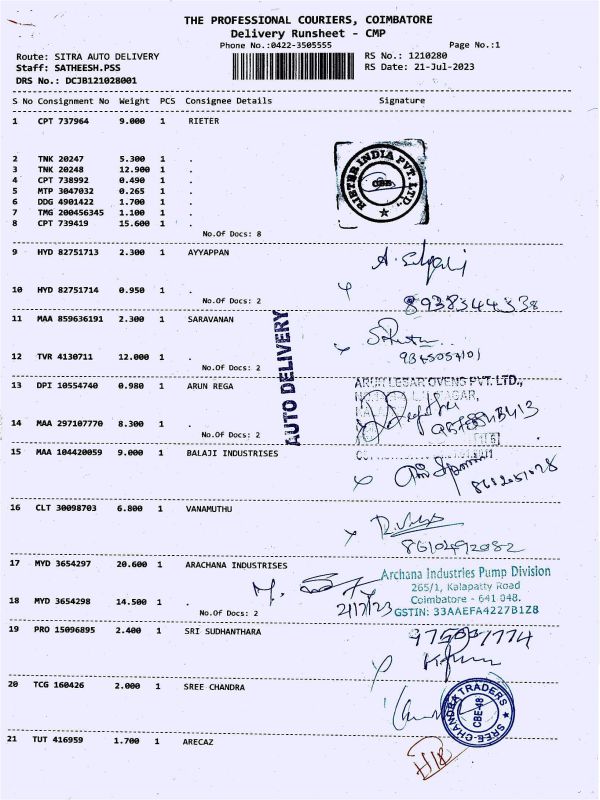 THE PROFESSIONAL COURIERS, COIMBATORE
Delivery Runsheet - CMP
Phone No.:0422-3505555 Page No.:1
Route: SITRA AUTO DELIVERY RS No.: 1210280
Staff: SATHEESH.PSS RS Date: 21-Jul-2023
DRS No.: DCJB121028001
S No Consignment No Weight PCS Consignee Details Signature
1 CPT 737964 9.000 1 RIETER
RIETER INDIA PVT. LTD.,
CBE
2 TNK 20247 5.300 1 .
3 TNK 20248 12.900 1 .
4 CPT 738992 0.490 1 .
5 MTP 3047032 0.265 1 .
6 DDG 4901422 1.700 1 .
7 TMG 200456345 1.100 1 .
8 CPT 739419 15.600 1 .
No.Of Docs: 8
9 HYD 82751713 2.300 1 AYYAPPAN
10 HYD 82751714 0.950 1 .
No.Of Docs: 2
8938344338
11 MAA 859636191 2.300 1 SARAVANAN
12 TVR 4130711 12.000 1 .
No.Of Docs: 2
AUTO DELIVERY
13 DPI 10554740 0.980 1 ARUN REGA
14 MAA 297107770 8.300 1 .
No.Of Docs: 2
15 MAA 104420059 9.000 1 BALAJI INDUSTRISES
16 CLT 30098703 6.800 1 VANAMUTHU
8610492082
17 MYD 3654297 20.600 1 ARACHANA INDUSTRISES
Archana Industries Pump Division
265/1, Kalapatty Road
Coimbatore - 641 048.
GSTIN: 33AAEFA4227B1Z8
18 MYD 3654298 14.500 1 .
No.Of Docs: 2
21/7/23
19 PRO 15096895 2.400 1 SRI SUDHANTHARA
20 TCG 160426 2.000 1 SREE CHANDRA
SREE-CHANDRA TRADERS
CBE-48
21 TUT 416959 1.700 1 ARECAZ